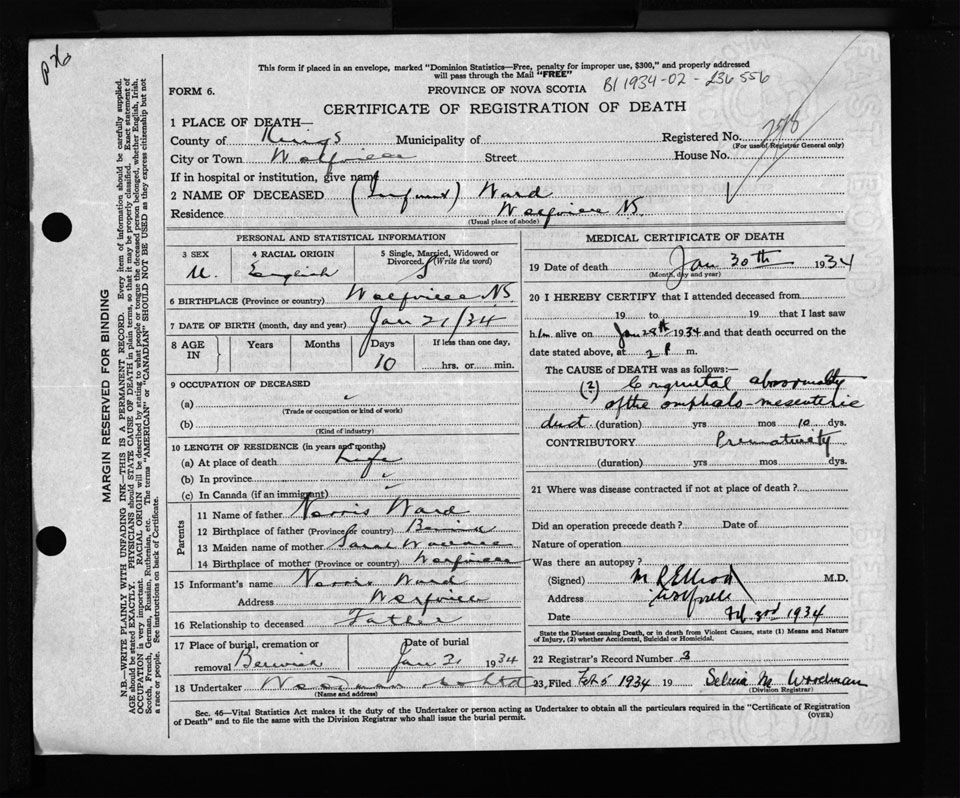 This form if placed in an envelope, marked "Dominion Statistics—Free, penalty for improper use, $300," and properly addressed
will pass through the Mail "FREE"
FORM 6.
PROVINCE OF NOVA SCOTIA
B1 1934-02-236556
CERTIFICATE OF REGISTRATION OF DEATH
1 PLACE OF DEATH—
County of Kings Municipality of Registered No. 298
(For use of Registrar General only)
City or Town Wolfville Street House No.
If in hospital or institution, give name
2 NAME OF DECEASED (Infant) Ward
Residence Wolfville NS.
(Usual place of abode)
PERSONAL AND STATISTICAL INFORMATION
3 SEX 4 RACIAL ORIGIN 5 Single, Married, Widowed or
Divorced. (Write the word)
M. English S
6 BIRTHPLACE (Province or country) Wolfville NS.
7 DATE OF BIRTH (month, day and year) Jan 21/34
8 AGE IN Years Months Days If less than one day,
10 hrs. or min.
9 OCCUPATION OF DECEASED
(a)
(Trade or occupation or kind of work)
(b)
(Kind of industry)
10 LENGTH OF RESIDENCE (in years and months)
(a) At place of death Life
(b) In province
(c) In Canada (if an immigrant)
Parents
11 Name of father Norris Ward
12 Birthplace of father (Province or country)
13 Maiden name of mother Sarah
14 Birthplace of mother (Province or country) Wolfville
15 Informant's name Norris Ward
Address Wolfville
16 Relationship to deceased Father
17 Place of burial, cremation or Date of burial
removal Berwick Jan 31 1934
18 Undertaker
(Name and address)
MEDICAL CERTIFICATE OF DEATH
19 Date of death Jan 30th 1934
(Month, day and year)
20 I HEREBY CERTIFY that I attended deceased from
19 to 19 that I last saw
him alive on Jan 28th 1934 and that death occurred on
date stated above, at 2 P. m.
The CAUSE of DEATH was as follows:—
(2) Congenital abnormality
of the omphalo-mesenteric
duct (duration) yrs mos 10 dys.
CONTRIBUTORY Prematurity
(duration) yrs mos dys.
21 Where was disease contracted if not at place of death?
Did an operation precede death? Date of
Nature of operation
Was there an autopsy?
(Signed) M R Elliott M.D.
Address Wolfville
Date Feb 3rd 1934
State the Disease causing Death, or in death from Violent Causes, state (1) Means and Nature
of Injury, (2) whether Accidental, Suicidal or Homicidal.
22 Registrar's Record Number 3
23, Filed Feb 5 1934 19 Selina M. Woodman
(Division Registrar)
Sec. 46—Vital Statistics Act makes it the duty of the Undertaker or person acting as Undertaker to obtain all the particulars required in the "Certificate of Registration
of Death" and to file the same with the Division Registrar who shall issue the burial permit. (OVER)
MARGIN RESERVED FOR BINDING
N.B.—WRITE PLAINLY WITH UNFADING INK—THIS IS A PERMANENT RECORD. Every item of information should be carefully supplied.
AGE should be stated EXACTLY. PHYSICIANS should STATE CAUSE OF DEATH in plain terms, so that it may be properly classified. Exact statement of
OCCUPATION is very important. RACIAL ORIGIN will be described by stating to what people or tongue the deceased person belonged, whether English, Irish,
Scotch, French, German, Russian, Ruthenian, etc. The terms "AMERICAN" or "CANADIAN" SHOULD NOT BE USED as they express citizenship but not
a race or people. See instructions on back of Certificate.